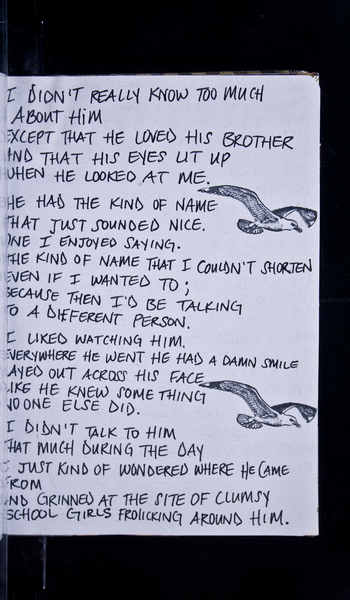 I DIDN'T REALLY KNOW TOO MUCH
ABOUT HIM
EXCEPT THAT HE LOVED HIS BROTHER
AND THAT HIS EYES LIT UP
WHEN HE LOOKED AT ME.
HE HAD THE KIND OF NAME
THAT JUST SOUNDED NICE.
ONE I ENJOYED SAYING.
THE KIND OF NAME THAT I COULDN'T SHORTEN
EVEN IF I WANTED TO;
BECAUSE THEN I'D BE TALKING
TO A DIFFERENT PERSON.
I LIKED WATCHING HIM.
EVERYWHERE HE WENT HE HAD A DAMN SMILE
LAYED OUT ACROSS HIS FACE
LIKE HE KNEW SOME THING
NO ONE ELSE DID.
I DIDN'T TALK TO HIM
THAT MUCH DURING THE DAY
I JUST KIND OF WONDERED WHERE HE CAME
FROM
AND GRINNED AT THE SITE OF CLUMSY
SCHOOL GIRLS FROLICKING AROUND HIM.